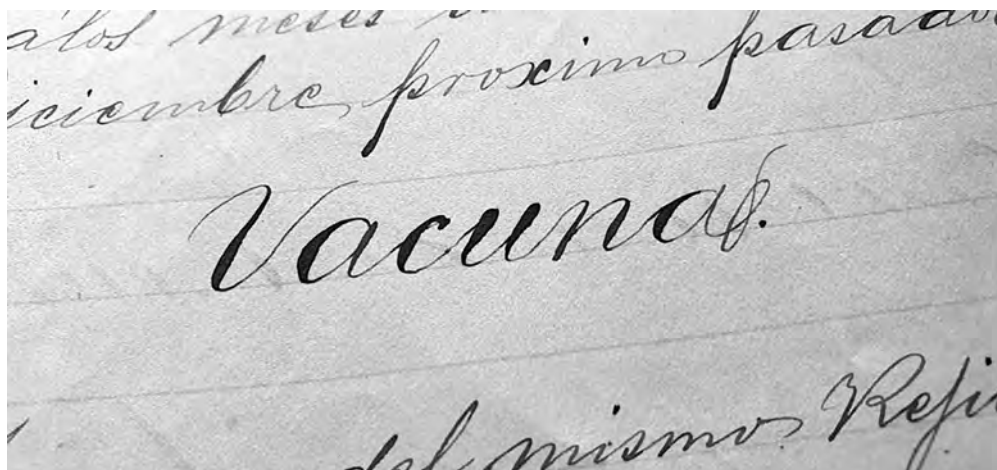 á los meses
iciembre próximo pasado
Vacunas.
del mismo Refi